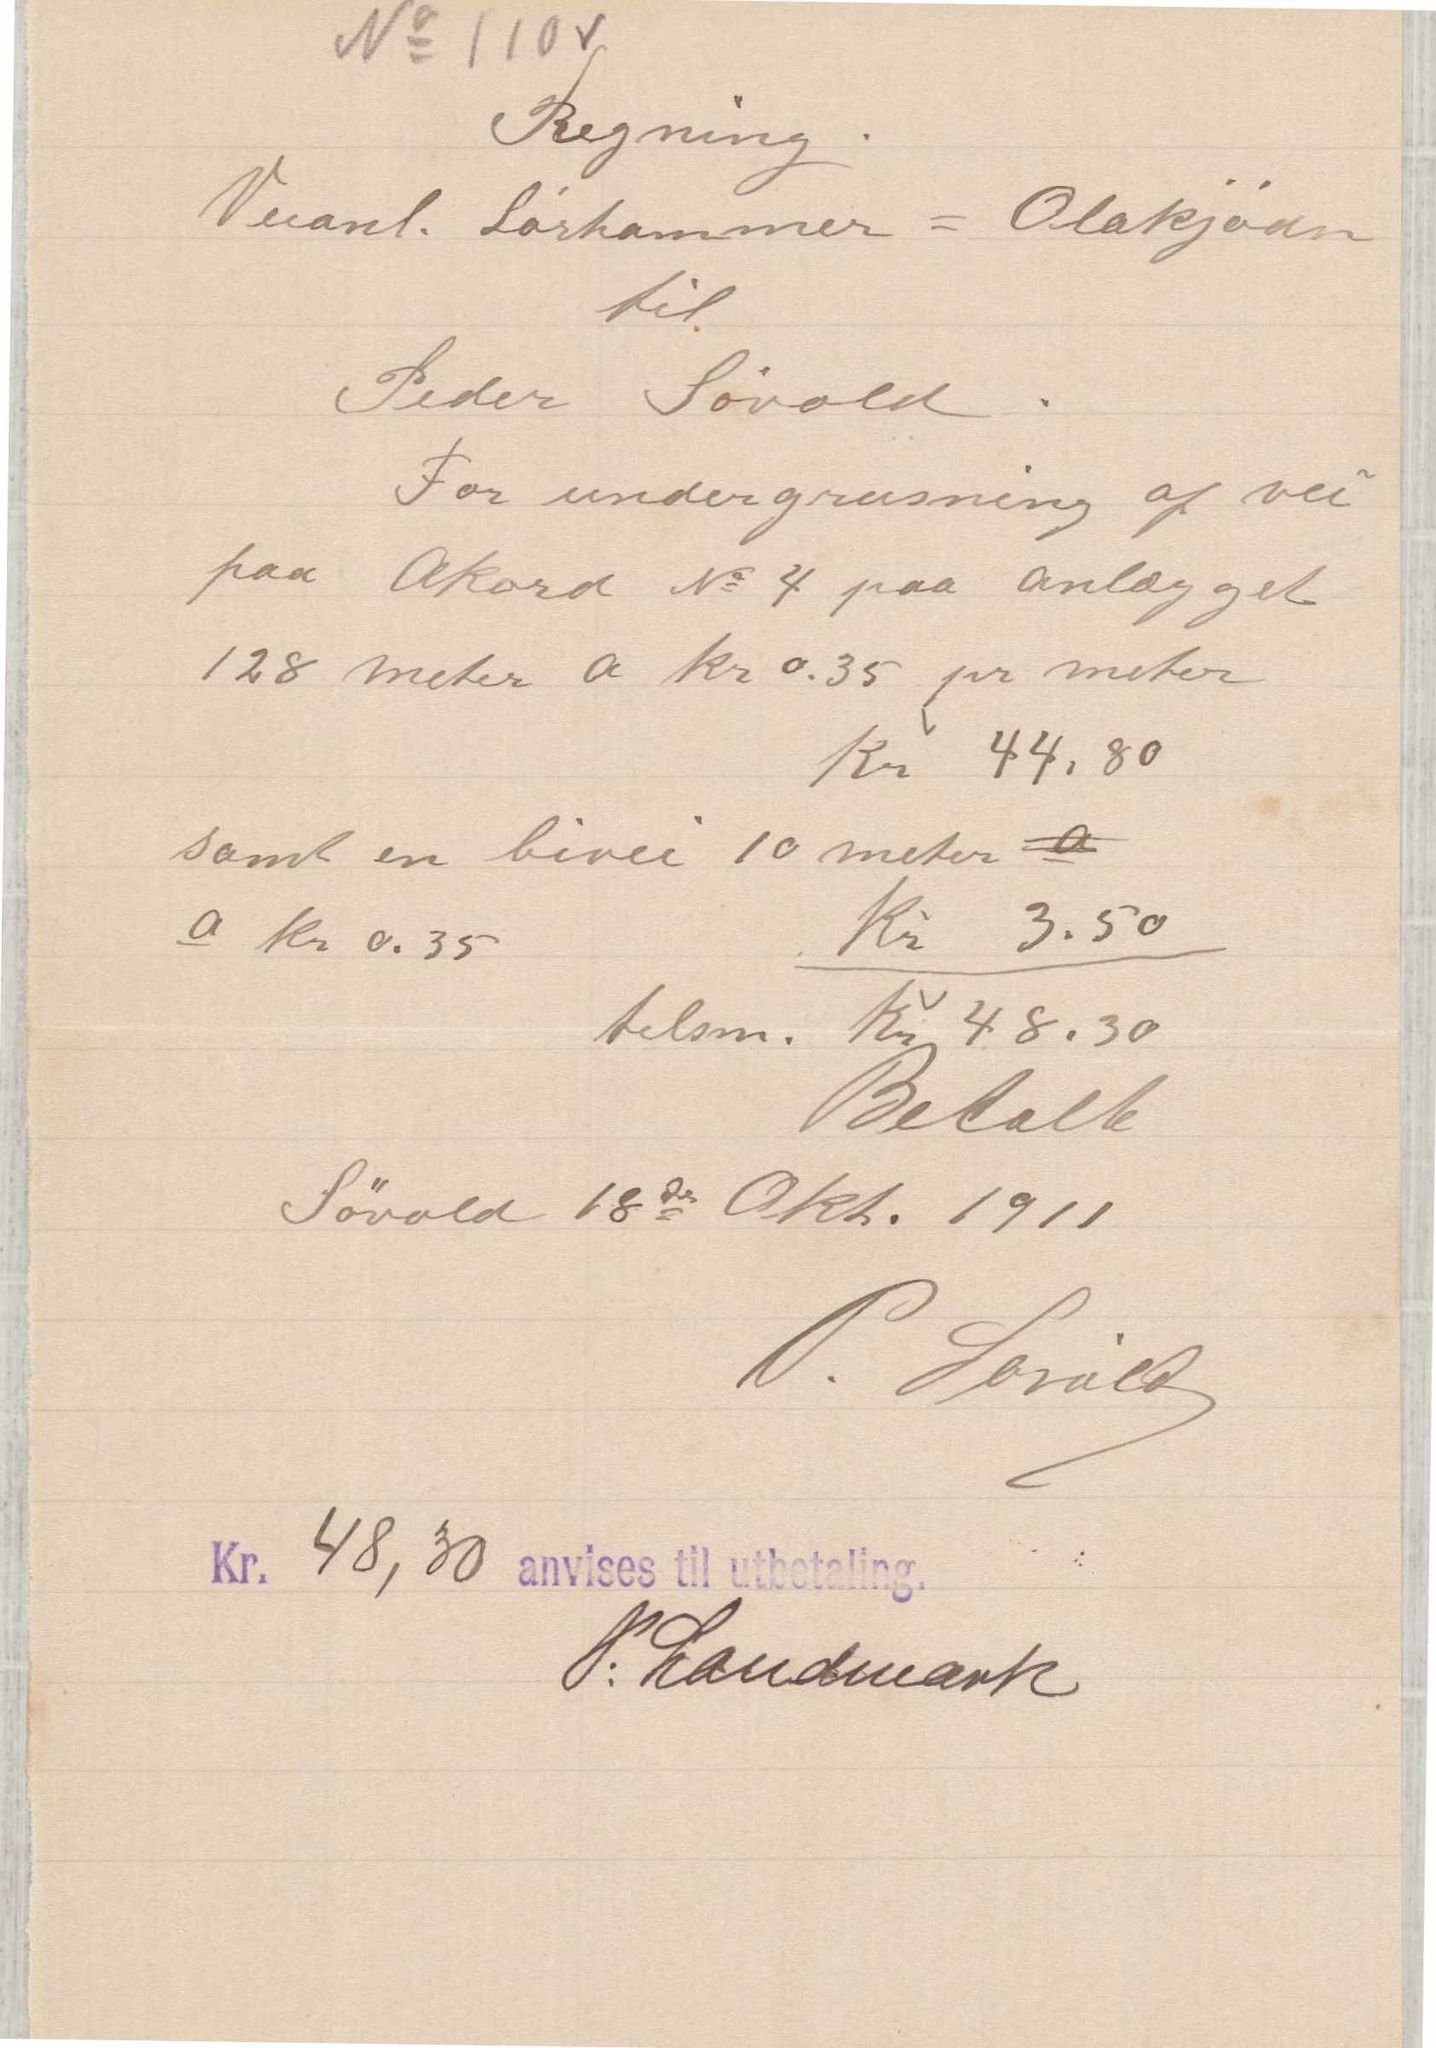 No 110 ✓
Regning.
Veianl. Sörhammer = Olakjödn
til
Peder Sövold.
For undergrusning af vei
paa Akord No 4 paa anlægget
128 meter a kr 0.35 pr meter
Kr 44.80
samt en bivei 10 meter a
a kr 0.35 Kr 3.50
tilsm. Kr 48.30
Betalt
Sövold 18de Okt. 1911
P. Sövold
Kr. 48,30 anvises til utbetaling.
N. Landmark